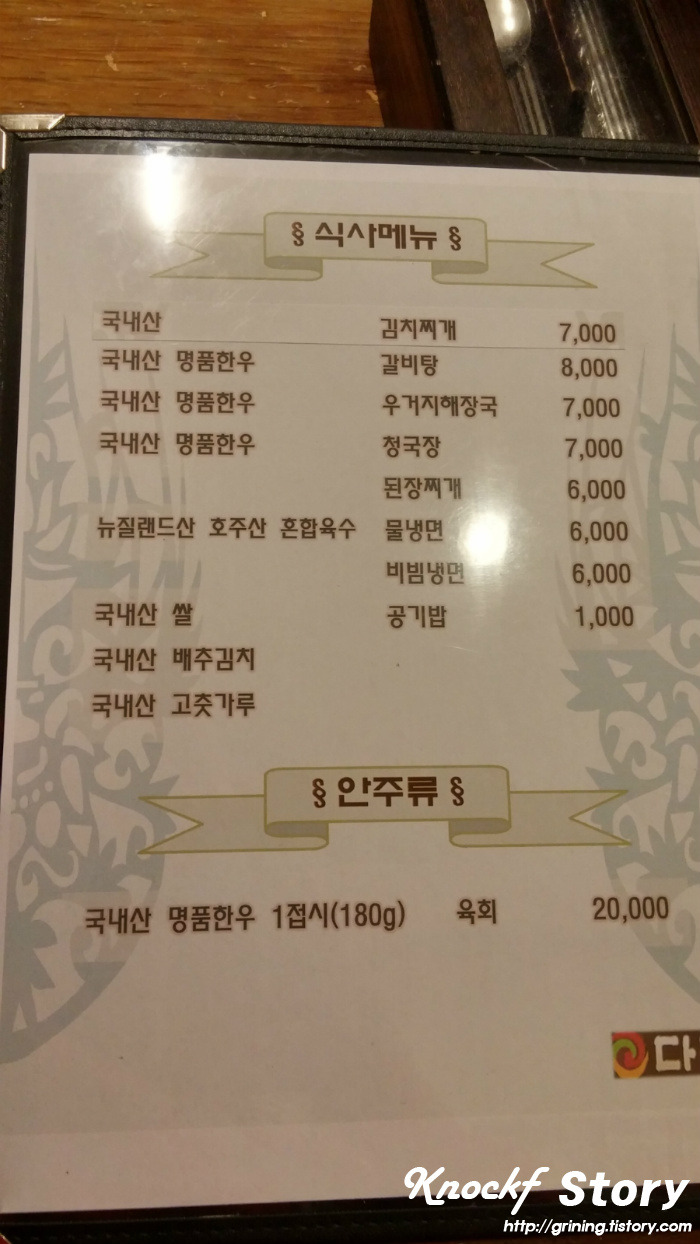 § 식사메뉴 §
국내산 김치찌개 7,000
국내산 명품한우 갈비탕 8,000
국내산 명품한우 우거지해장국 7,000
국내산 명품한우 청국장 7,000
된장찌개 6,000
뉴질랜드산 호주산 혼합육수 물냉면 6,000
비빔냉면 6,000
국내산 쌀 공기밥 1,000
국내산 배추김치
국내산 고춧가루
§ 안주류 §
국내산 명품한우 1접시(180g) 육회 20,000
다
Knockf Story
http://grining.tistory.com